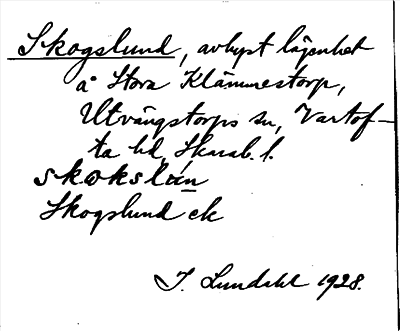 Skogslund, avhyst lägenhet
å Stora Klämmestorp,
Utvängstorps sn, Vartof-
ta hd, Skarab. l.
skokslun
Skogslund ek
I. Lundahl 1928.